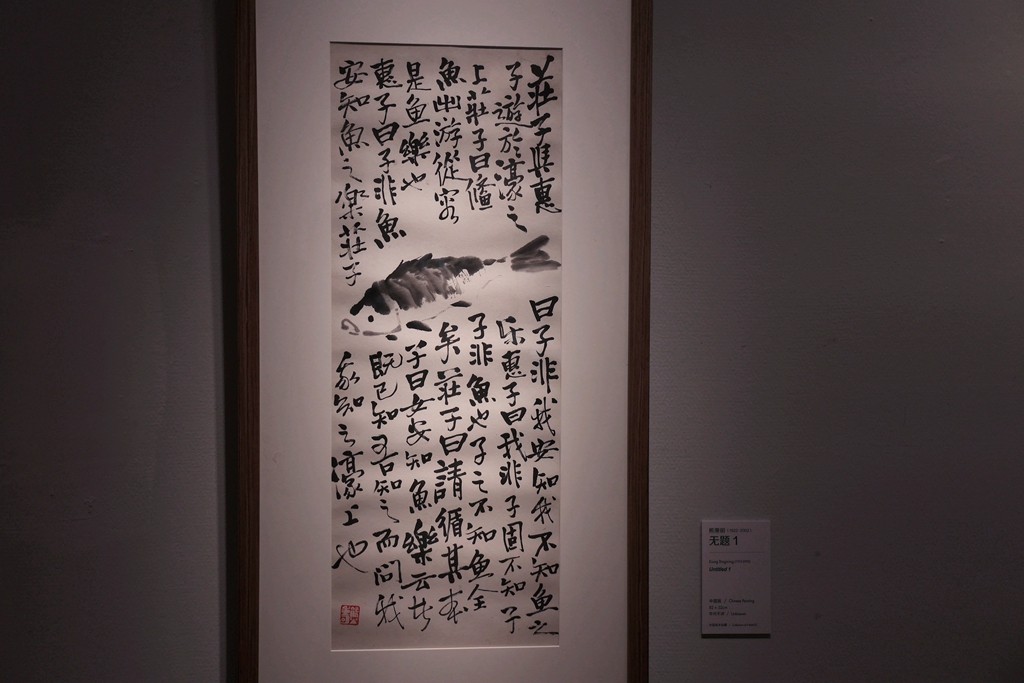 莊子與惠
子遊於濠之
上莊子曰鯈
魚出游從容
是鱼樂也
惠子曰子非魚
安知魚之樂莊子
曰子非我安知我不知魚之
乐惠子曰我非子固不知子
子非魚也子之不知魚全
矣莊子曰請循其本
子曰女安知魚樂云者
既已知吾知之而問我
我知之濠上也
无题 1
Untitled 1